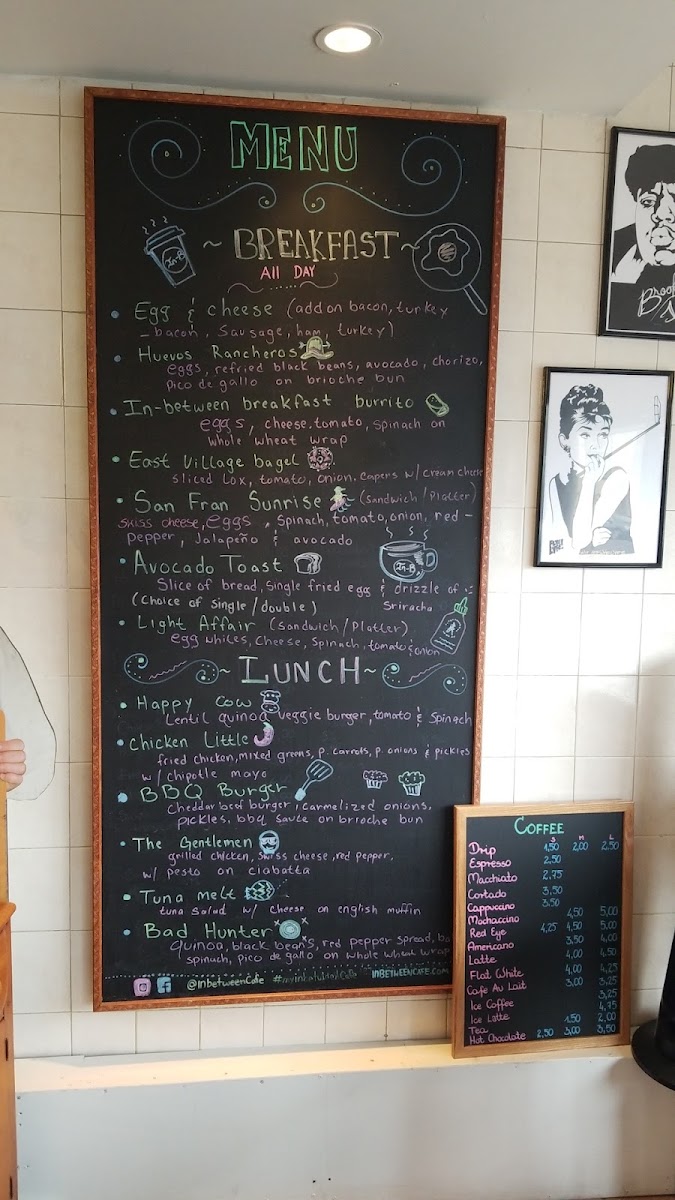 MENU
~ BREAKFAST ~
All DAY
In-B
• Egg & cheese (add on bacon, turkey
- bacon, Sausage, ham, turkey)
• Huevos Rancheros
eggs, refried black beans, avocado, chorizo,
Pico de gallo on brioche bun
• In-between breakfast burrito
eggs, cheese.tomato, spinach on
whole wheat wrap
• East Village bagel
Sliced Lox, tomato, onion.capers w/ cream cheese
• San Fran Sunrise (sandwich / Platter)
swiss cheese, eggs, spinach, tomato, onion, red -
pepper, Jalapeño & avocado
• Avocado Toast
In-B
Slice of bread, single fried egg & drizzle of
(Choice of Single / double) Sriracha
• Light Affair (Sandwich / Platter)
egg whites, Cheese, Spinach, tomato & onion
~ LUNCH ~
• Happy Cow
Lentil quinoa veggie burger, tomato & Spinach
• Chicken Little
fried chicken, mixed greens, p. carrots, p. onions & pickles
w/ chipotle mayo
• BBQ Burger
Cheddar beef burger, carmelized onions,
pickles, bbq sauce on brioche bun
• The Gentlemen
grilled chicken, swiss cheese, red pepper,
w/ pesto on ciabatta
• Tuna melt
tuna salad w/ cheese on english muffin
• Bad Hunter
quinoa, black beans, red pepper spread,
spinach, pico de gallo on whole wheat wrap
@inbetweencafe INBETWEENCAFE.COM
COFFEE
S M L
Drip 1,50 2,00 2.50
Espresso 2,50
Macchiato 2.75
Cortado 3.50
Cappucano 3.50
Mochaccino 4,50 5,00
Red Eye 4,25 4,50 5,00
Americano 3.50 4,00
Latte 4,00 4,50
Flat White 4,00 4,25
Cafe Au Lait 3,00 3,25
Ice Coffee 3,25
Ice Latte 4,75
Tea 1.50 2,00
Hot Chocolate 2,50 3,00 3,50